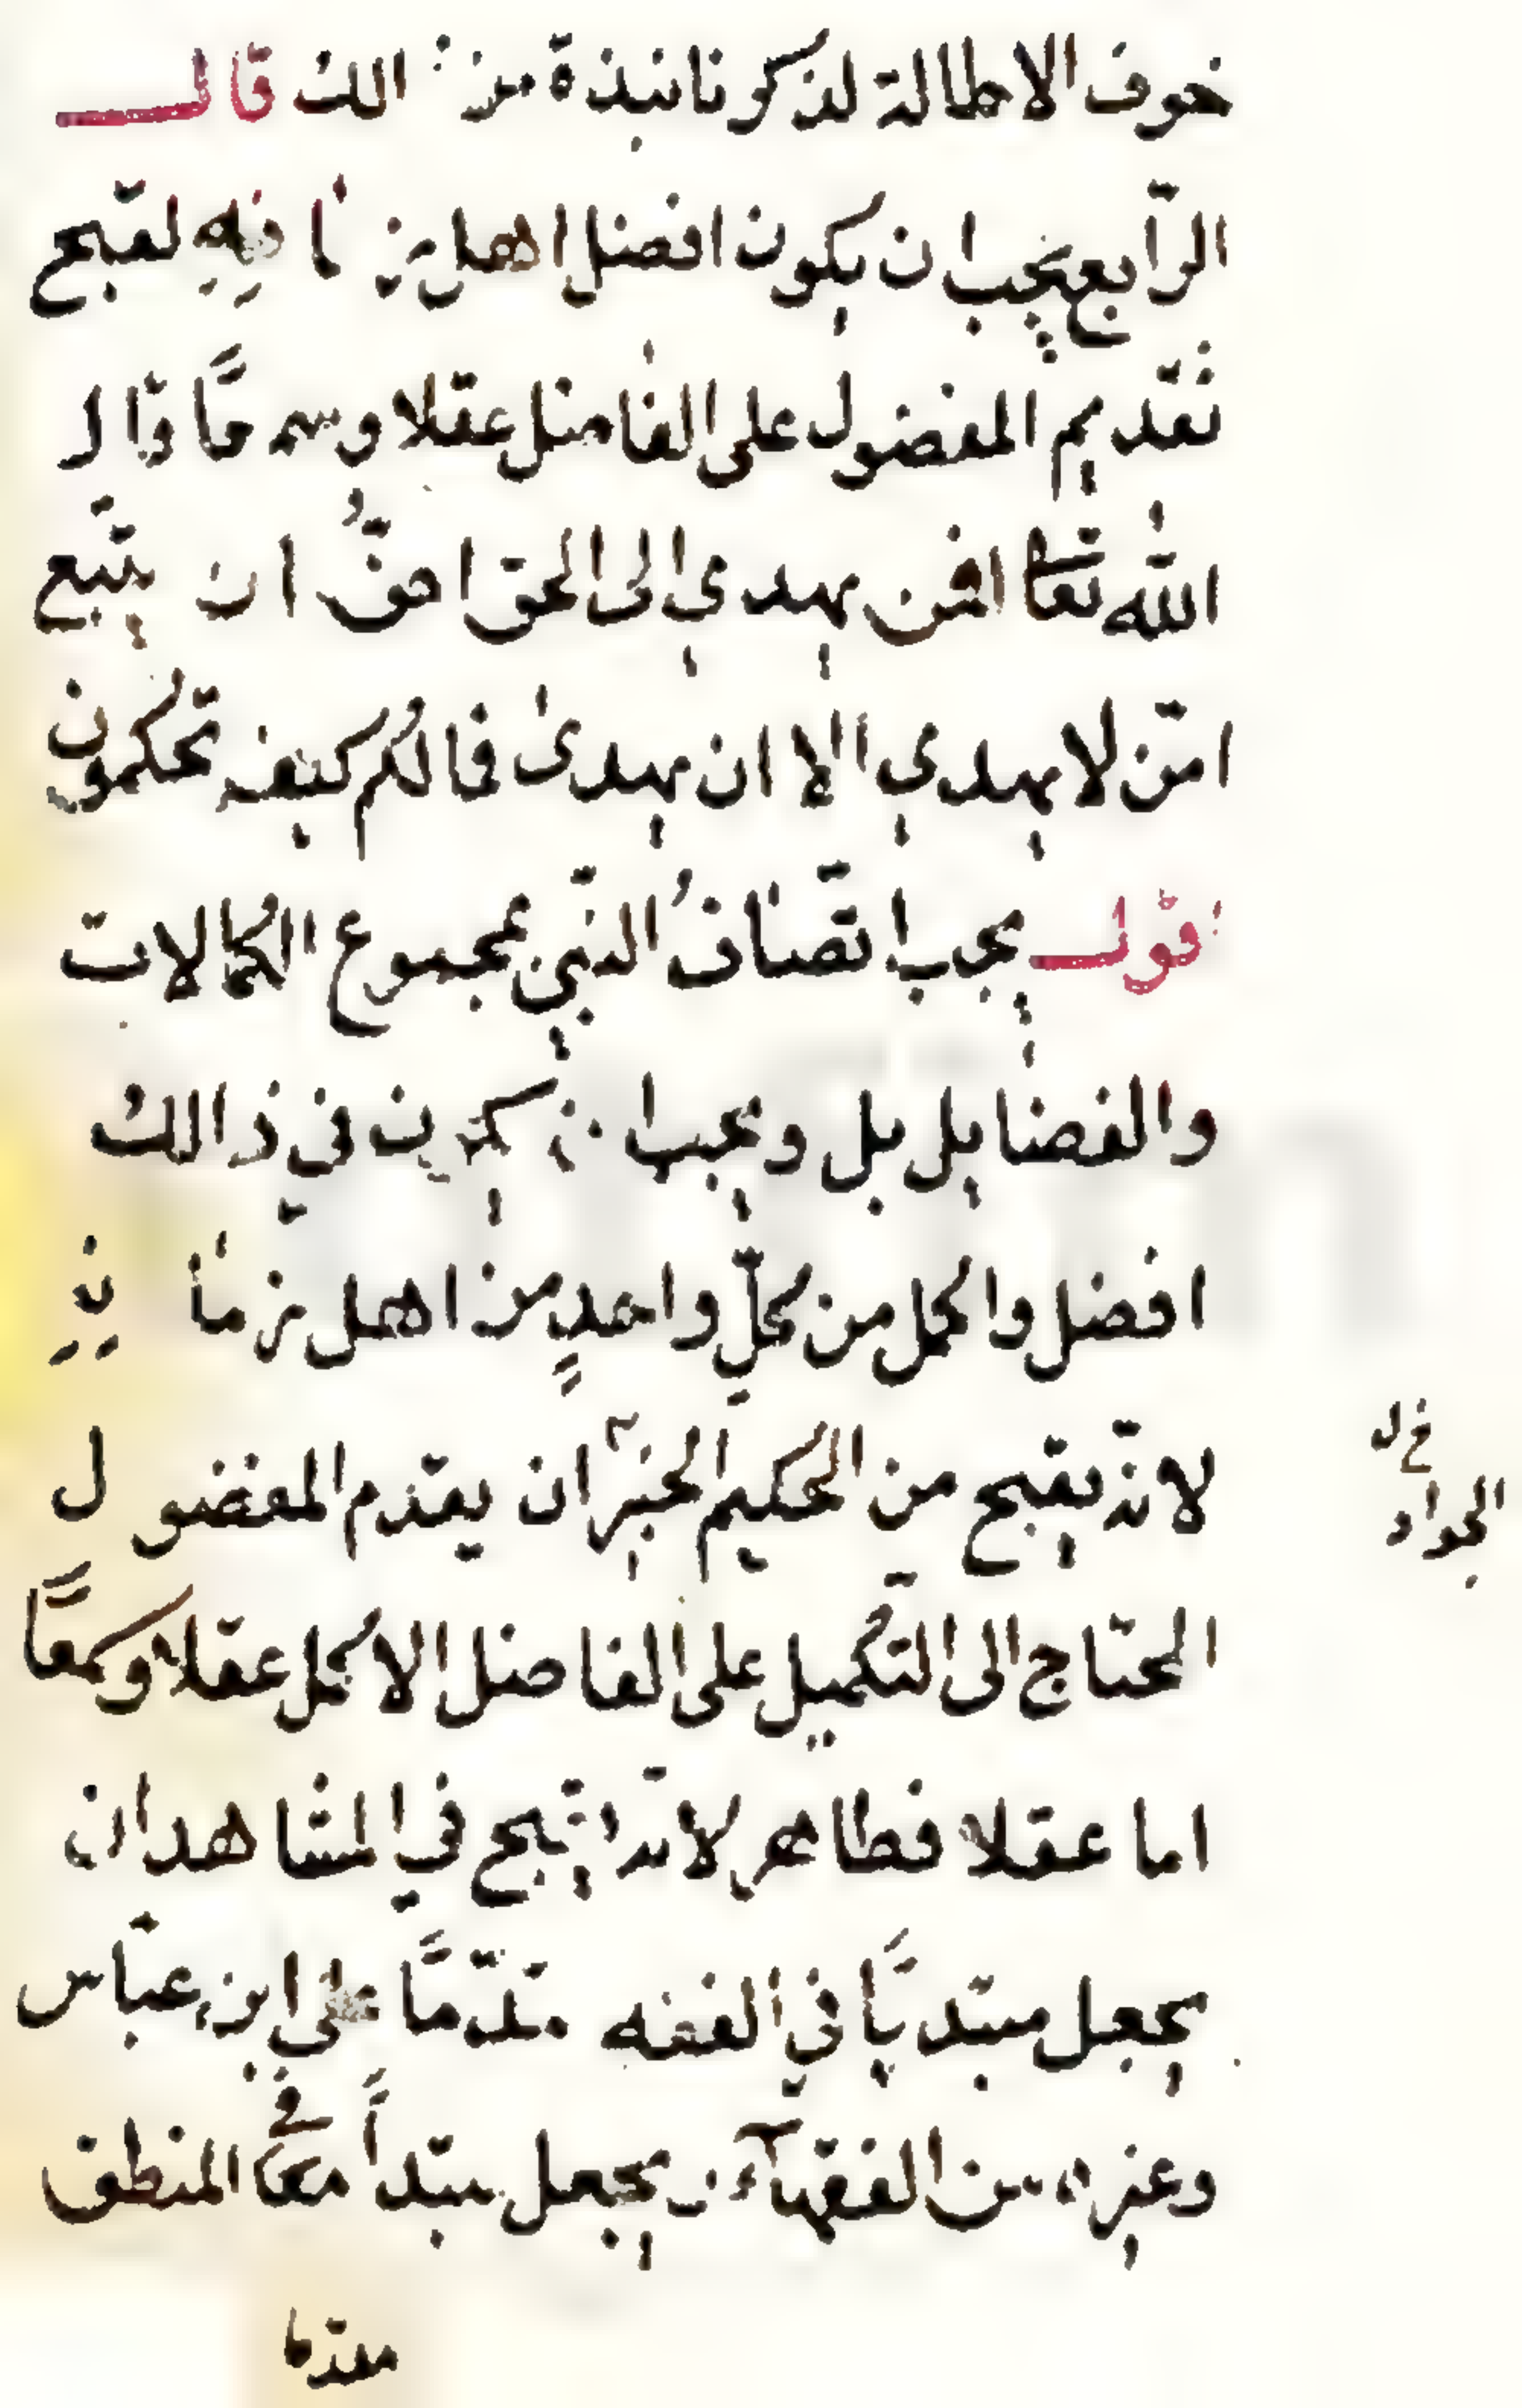 خوف الاطالة لذكرنا نبذة من ذالك قال
الرّابع يجب ان يكون افضل اهل زمانه لقبح
تقديم المفضول على الفاضل عقلا وسمعًا قال
الله تعا افمن يهدي الى الحق احقُّ ان يتّبع
امّن لا يهدي الا ان يهدى فمالكم كيف تحكمون
اقول يجب اتّصافُ النّبي بمجموع الكمالات
والفضايل بل ويجب ان يكون في ذالك
افضل واكمل من كلّ واحدٍ من اهل زمانه
لانّه يقبح من الحكيم الخبير ان يقدّم المفضول
المحتاج الى التكميل على الفاضل الاكمل عقلا وسمعًا
اما عقلا فظاهر لانه يقبح في المشاهد ان
يجعل مبتديًا في الفقه مقدّمًا على ابن عبّاس
وغيره من الفقهآء ويجعل مبتدأً في المنطق
مقدّما
خ ل
الجواد